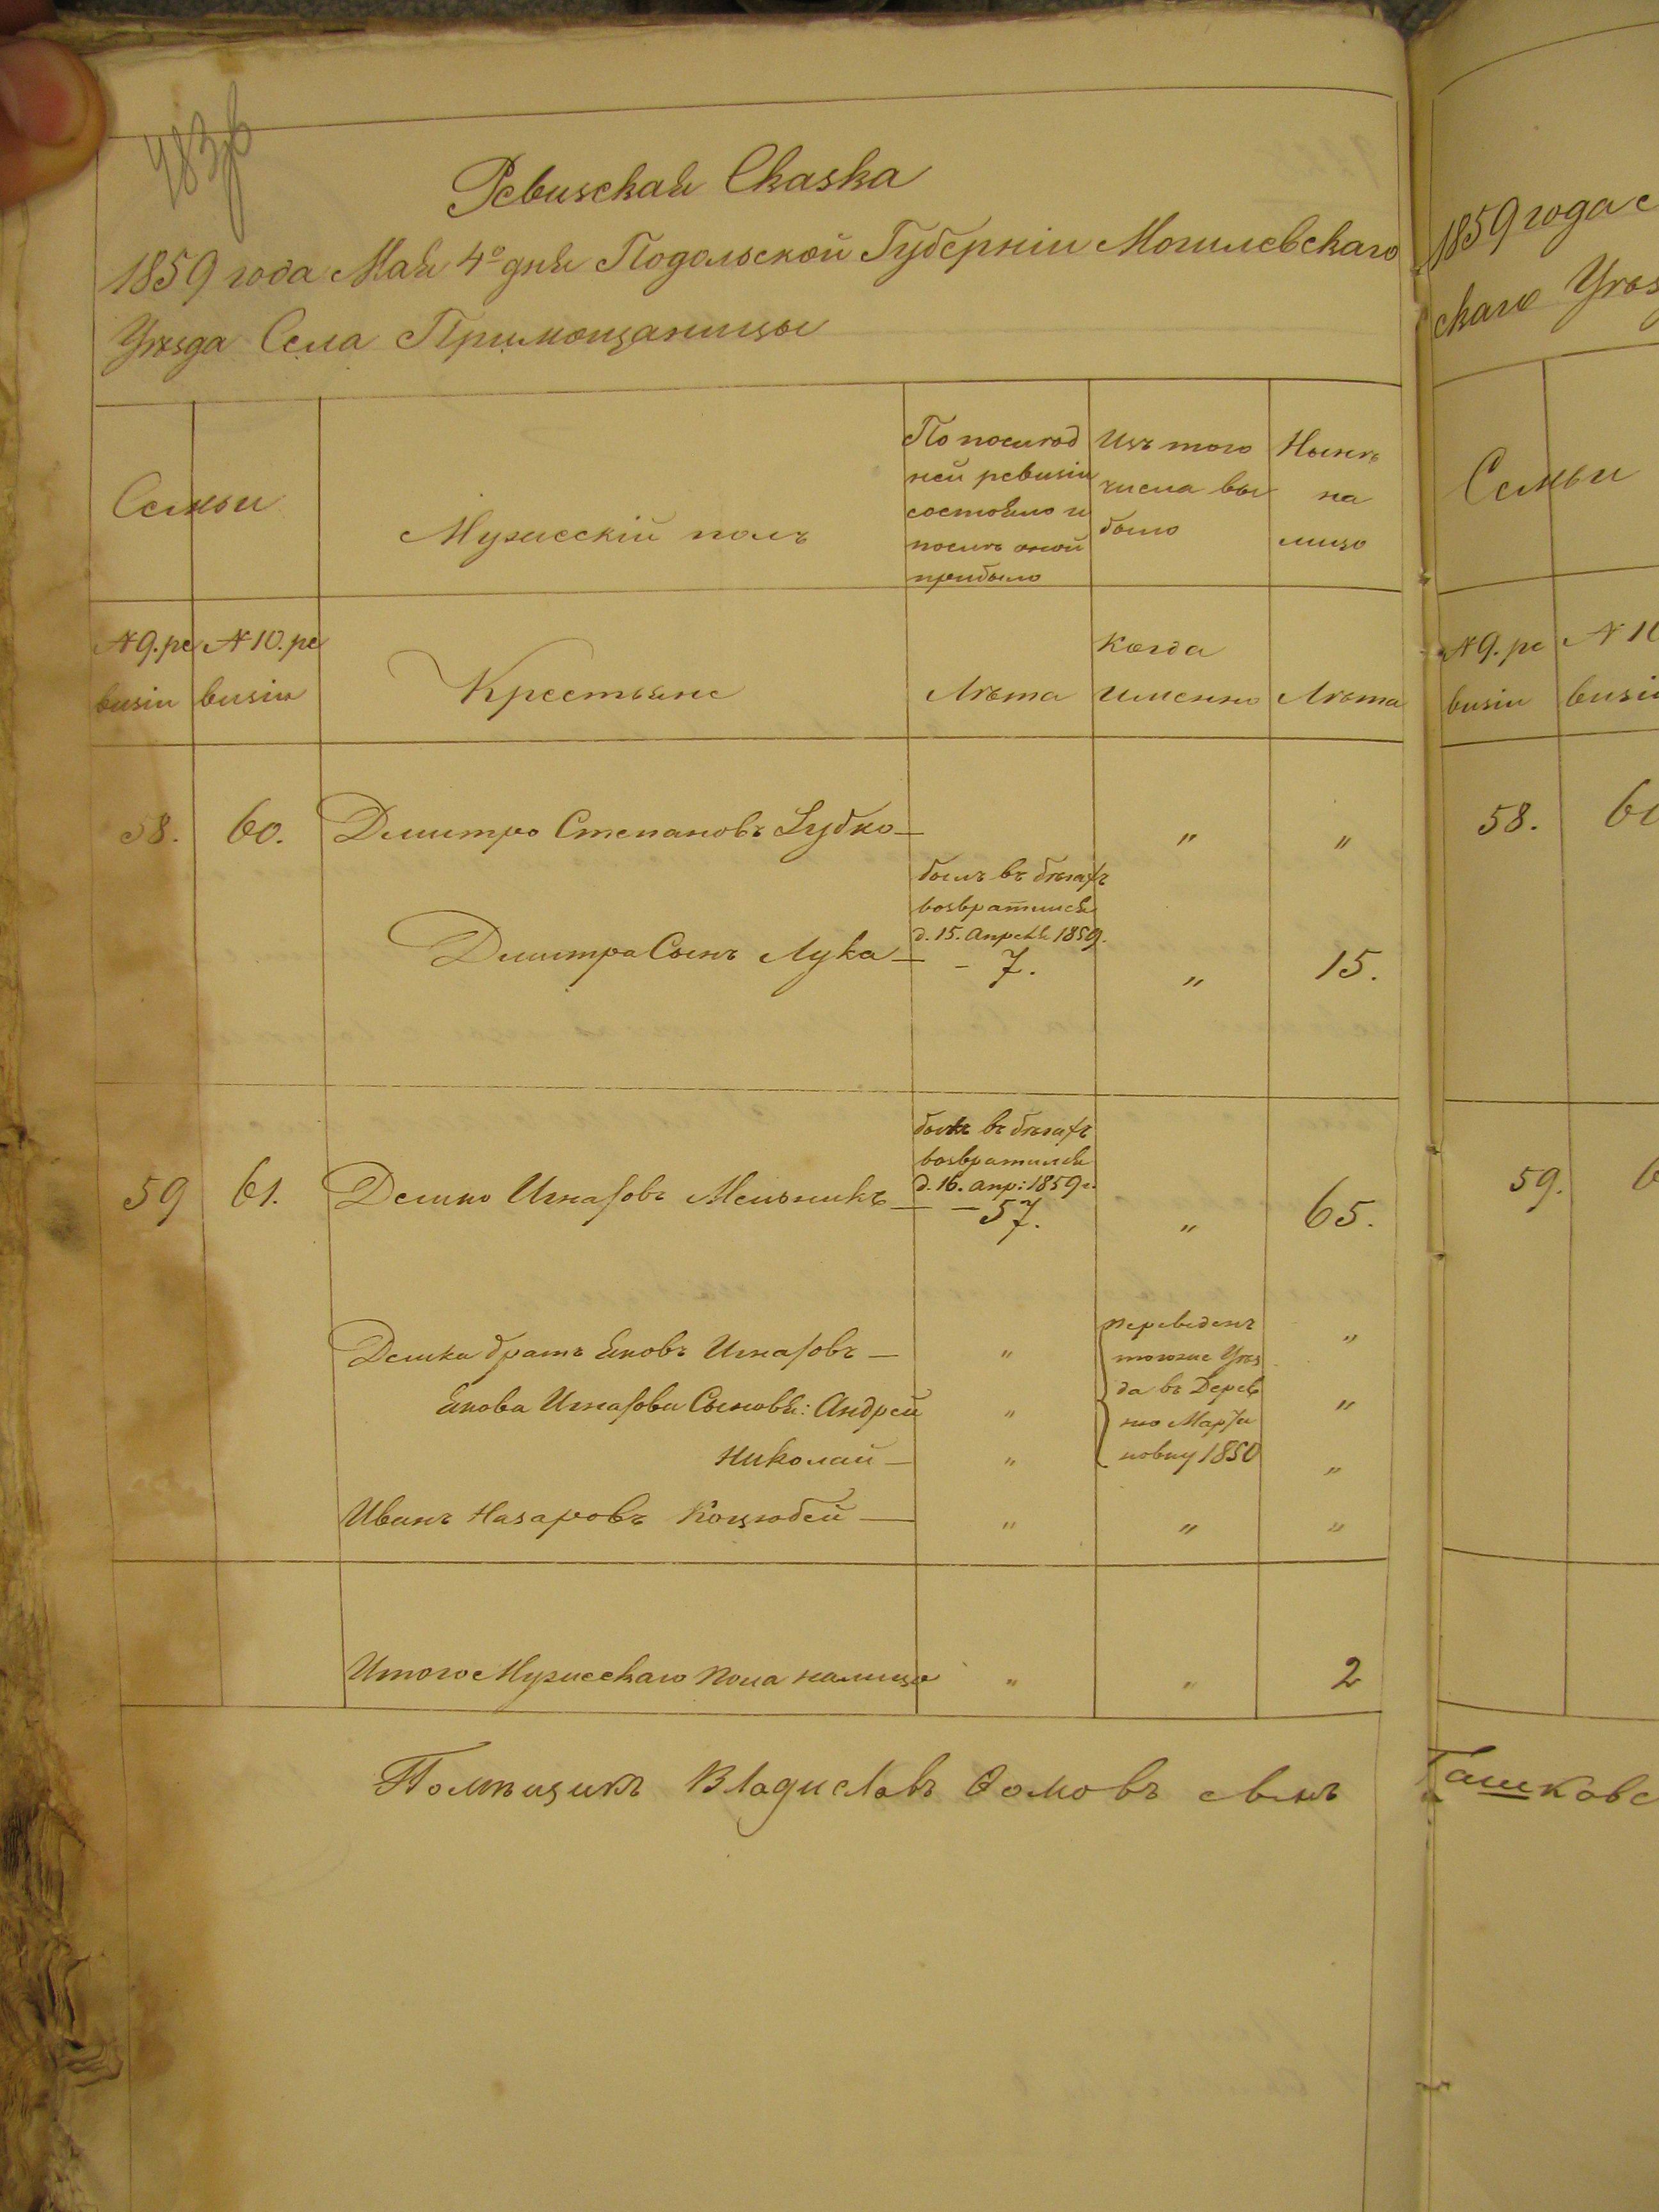 483об
Ревизская Сказка
1859 года Мая 4º дня Подольской Губерніи Могилевскаго
Уѣзда Села
Семьи
Мужескій полъ
По послѣд
ней ревизіи
состояло и
послѣ оной
прибыло
Изъ того
числа вы
было
Нынѣ
на
лицо
№ 9. ре
визіи
№ 10. ре
визіи
Крестьяне
Лѣта
Когда
именно
Лѣта
58.
60.
Дмитро Степановъ Зубко —
"
"
былъ въ бѣгахъ
возвратился
д. 15. Апреля 1859.
Дмитра Сынъ Лука —
- 7.
"
15.
былъ въ бѣгахъ
возвратился
д. 16. апр: 1859 г.
59
61.
Демко Игнатовъ Мельникъ —
- 57.
"
65.
Демка братъ Яковъ Игнатовъ —
"
переведенъ
тогоже Уѣз
да въ Дерев
ню Марти
новку 1850
"
Якова Игнатова Сыновья: Андрей
"
"
Николай —
"
"
Иванъ Назаровъ Коцюбей —
"
"
"
Итого Мужескаго пола налицо
"
"
2
Помѣщикъ Владиславъ Ѳомовъ сынъ
1859 года
скаго Уѣз
Семьи
№ 9. ре
визіи
№ 10
визіи
58.
60
59.
6
Ташковс